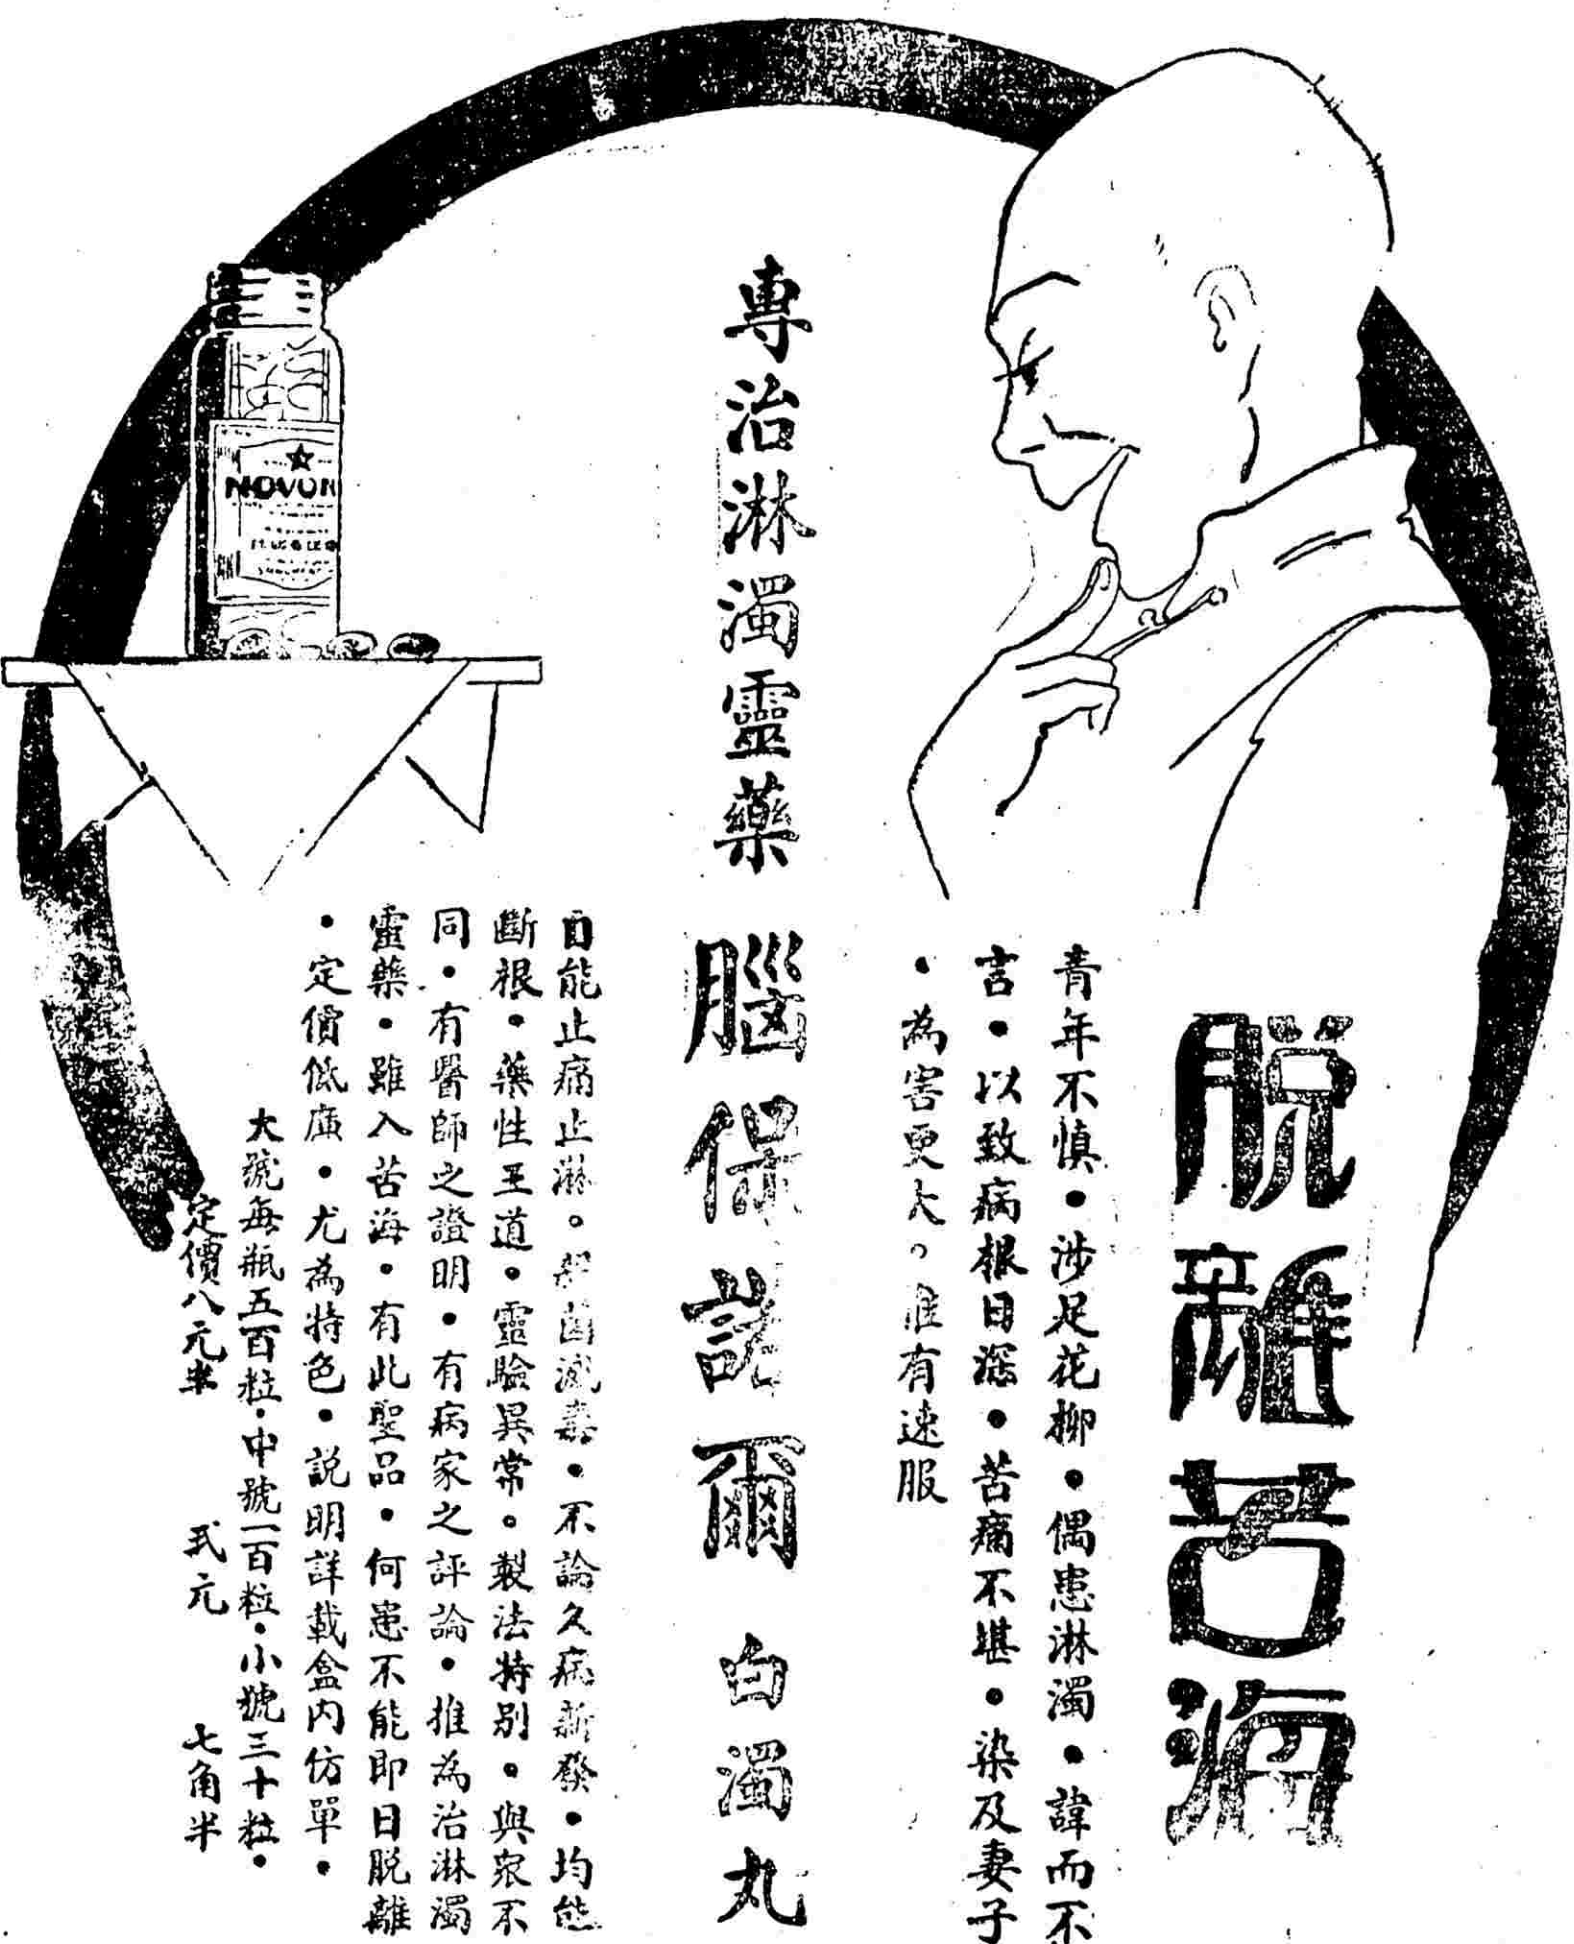 脫離苦海
青年不慎・涉足花柳・偶患淋濁・諱而不
言・以致病根日深・苦痛不堪・染及妻子
・為害更大。惟有速服
專治淋濁靈藥
腦保諾爾 白濁丸
自能止痛止淋。殺菌滅毒・不論久病新發・均能
斷根・藥性王道・靈驗異常。製法特别・與眾不
同・有醫師之證明・有病家之評論・推為治淋濁
靈藥・雖入苦海・有此聖品・何患不能即日脫離
・定價低廉・尤為特色・説明詳載盒內仿單・
大號每瓶五百粒・中號一百粒・小號三十粒・
定價八元半 弍元 七角半
NOVON